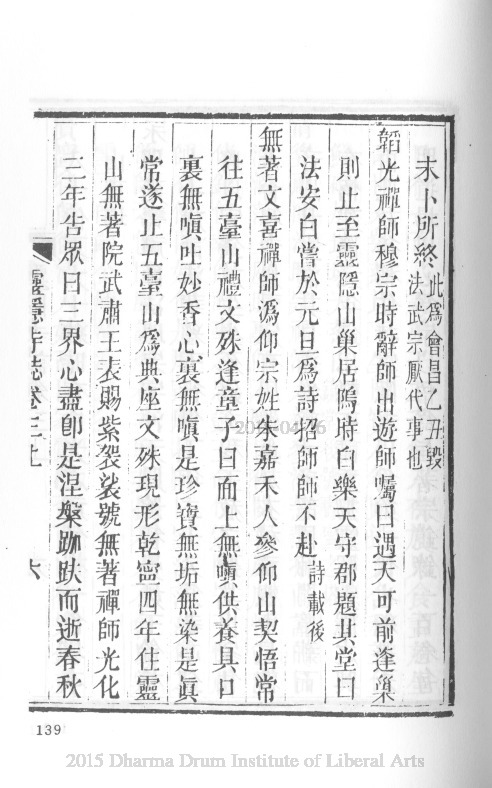 未卜所終此爲會昌乙丑毀
法武宗厭代事也
韜光禪師穆宗時辭師出遊師囑曰遇天可前逢巢
則止至靈隱山巢居塢時白樂天守郡題其堂曰
法安白嘗於元旦爲詩招師師不赴詩載後
無著文喜禪師潙仰宗姓朱嘉禾人參仰山契悟常
往五臺山禮文殊逢童子曰面上無嗔供養具口
裏無嗔吐妙香心裏無嗔是珍寶無垢無染是眞
常遂止五臺山爲典座文殊現形乾寧四年住靈
山無著院武肅王表賜紫袈裟號無著禪師光化
三年告眾曰三界心盡卽是涅槃跏趺而逝春秋
靈隱寺誌卷三上
六
139
2015 Dharma Drum Institute of Liberal Arts